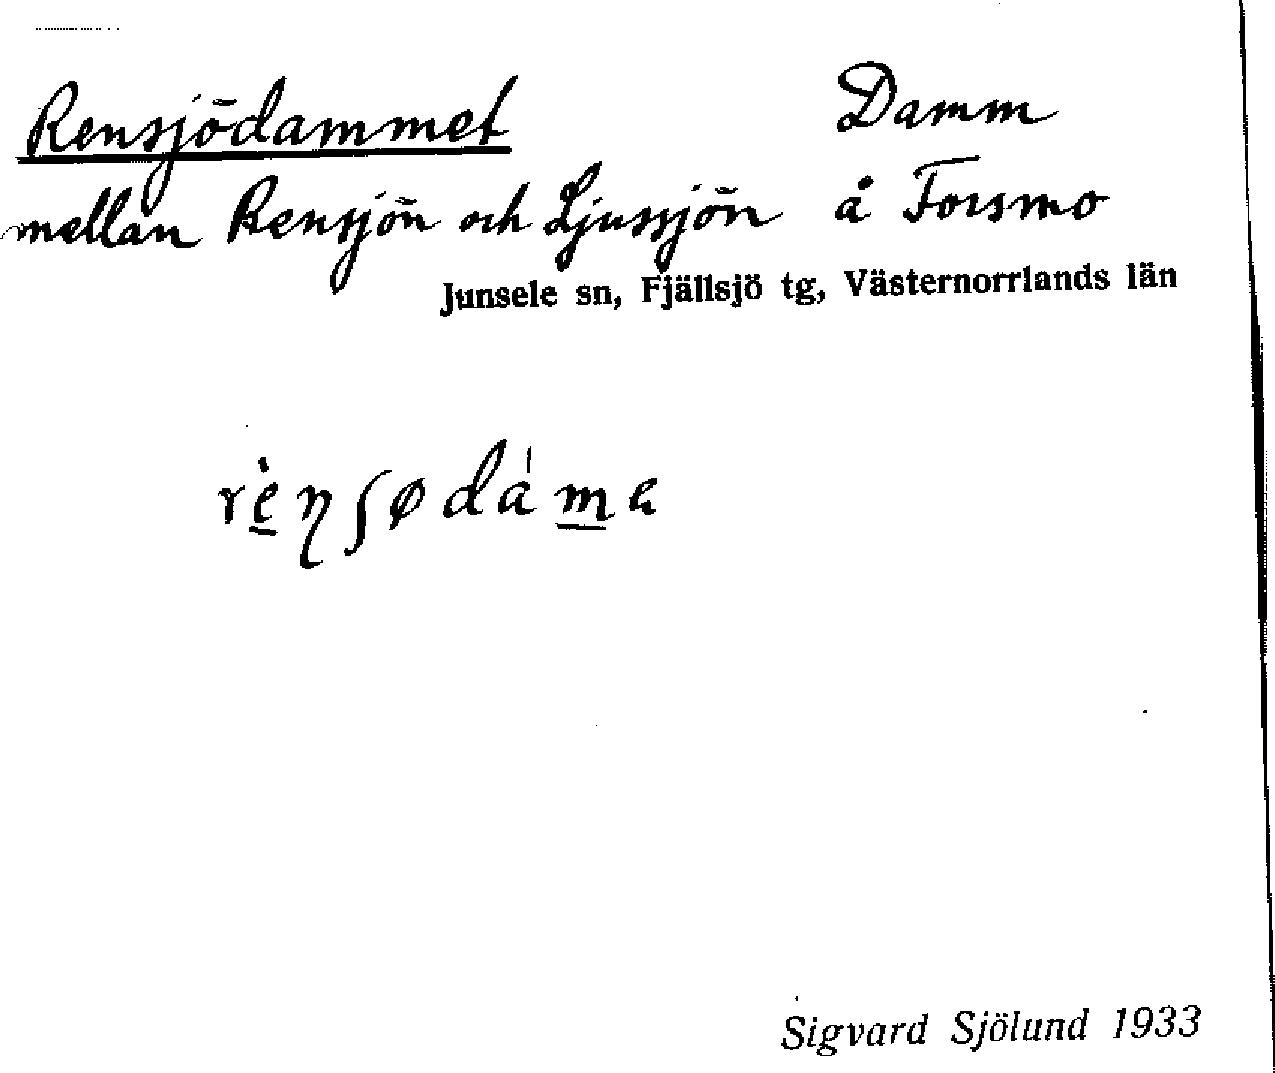 Rensjödammet Damm
mellan Rensjön och Ljussjön å Forsmo
Junsele sn, Fjällsjö tg, Västernorrlands län
rèn̡ʃødáma
Sigvard Sjölund 1933